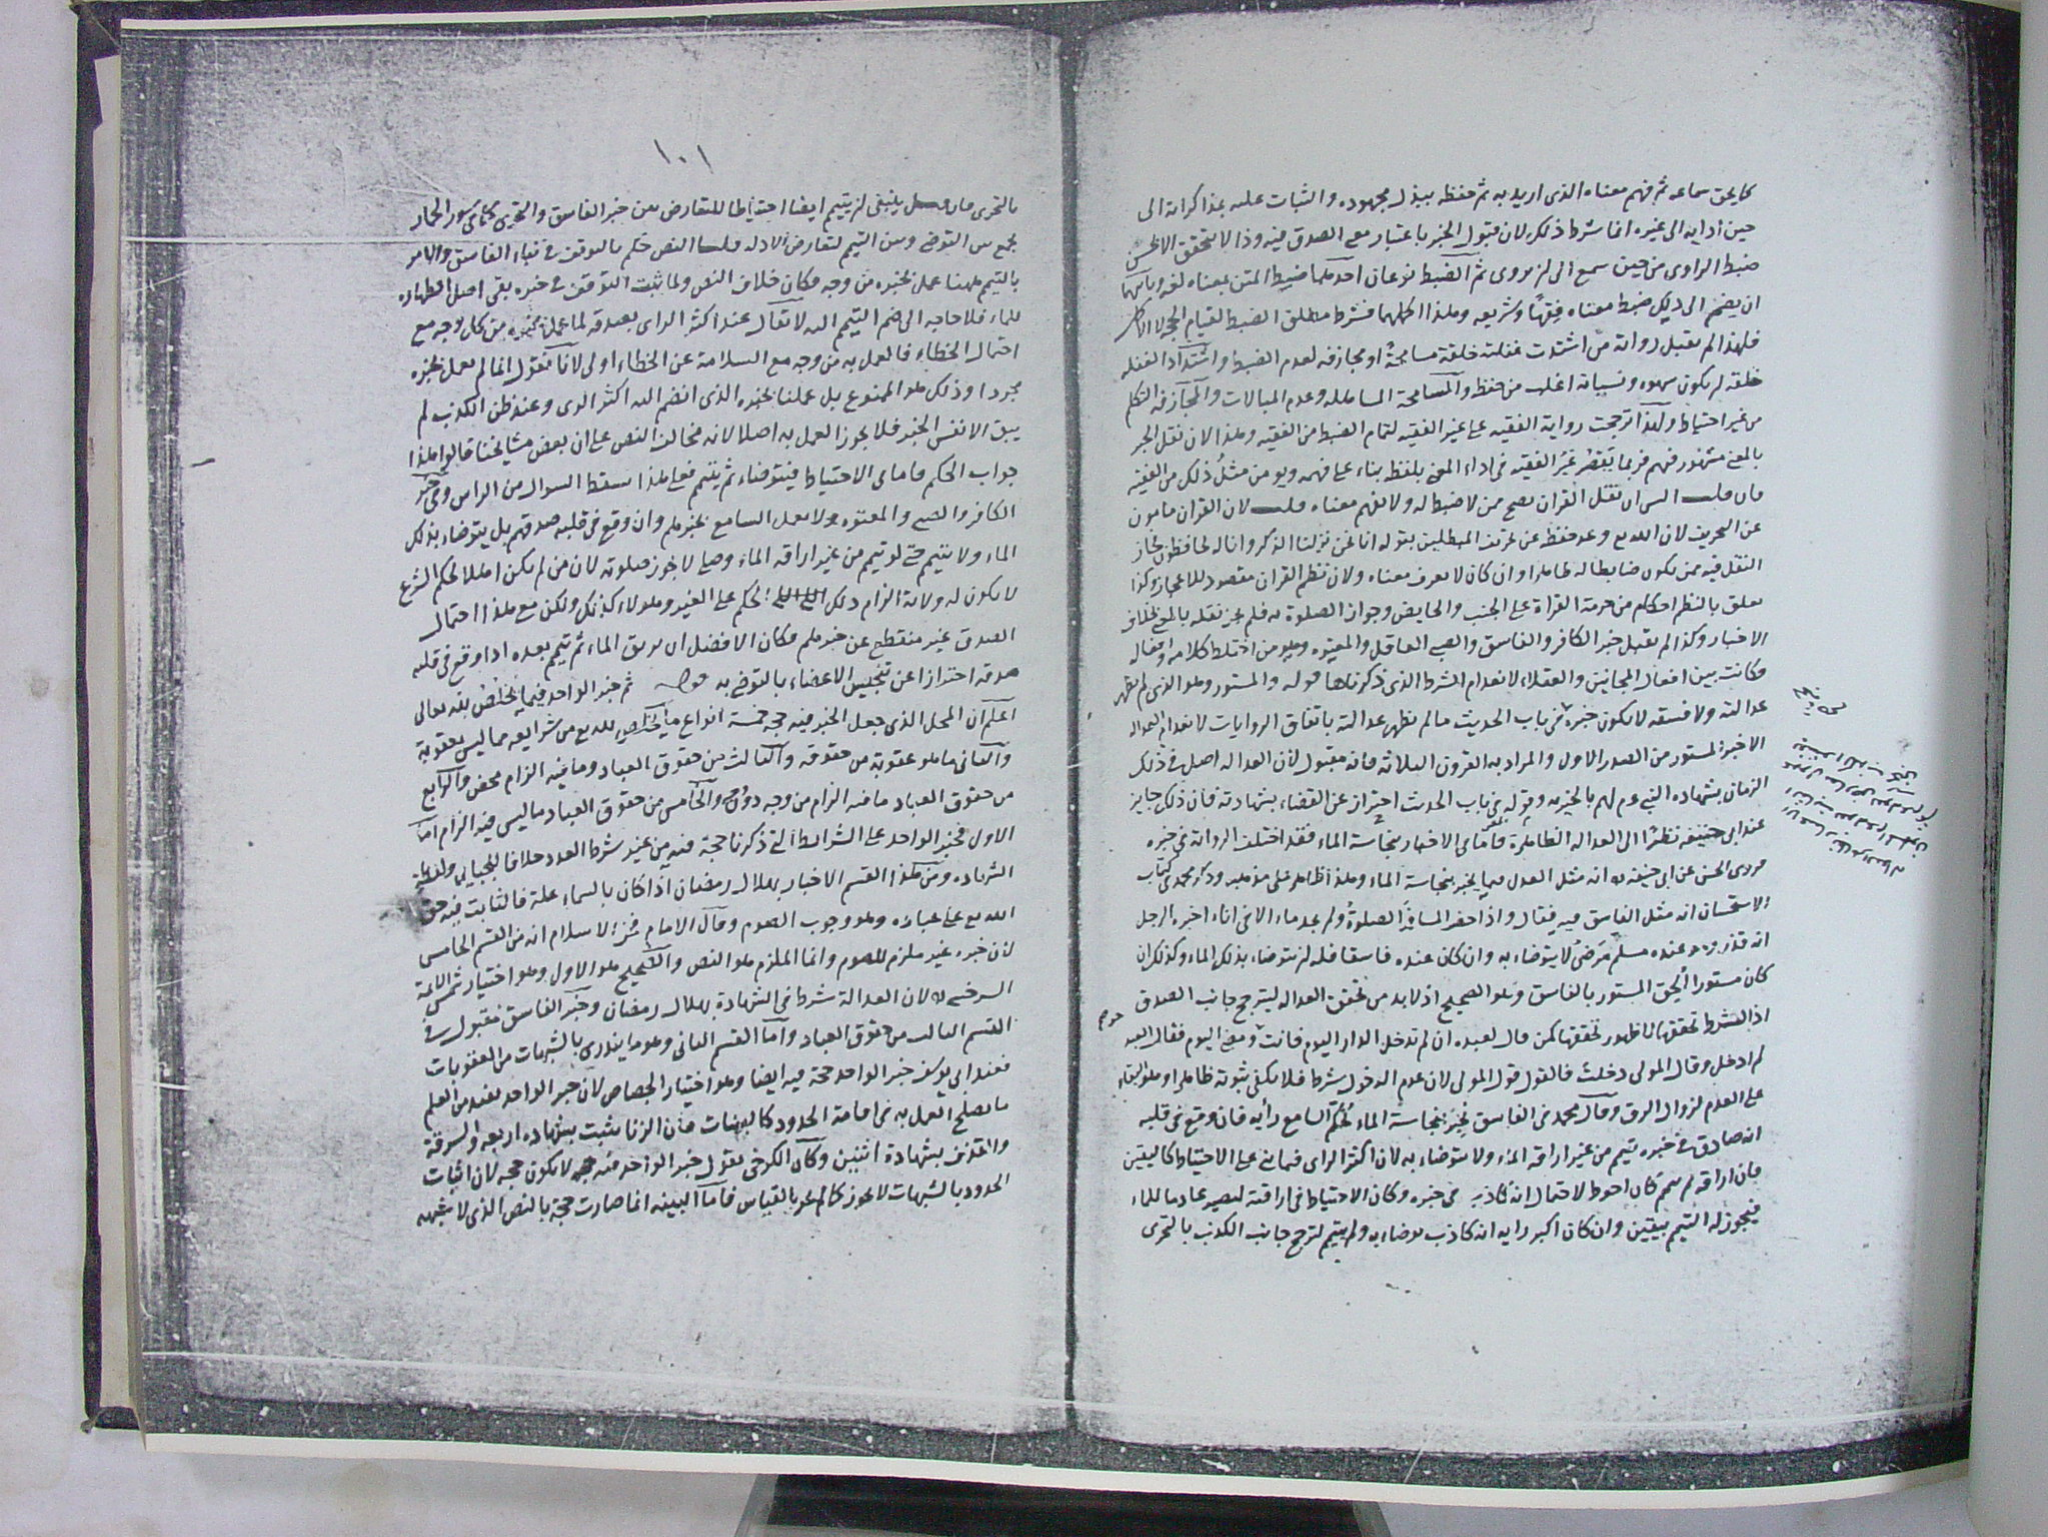 كما يحق سماعه ثم فهم معناه الذى اريد به ثم حفظه ببذل مجهوده والثبات عليه بمذاكراته الى
حين أدايه الى غيره انما شرط ذلك لان قبول الخبر باعتبار معنى الصدق فيه وذا لا يتحقق الا بحسن
ضبط الراوى من حين سمع الى ان يروى ثم الضبط نوعان احدهما ضبط المتن بمعناه لغة وثانيهما
ان يضم الى ذلك ضبط معناه فقها وشريعة وهذا اكملهما فشرط مطلق الضبط لقيام الحجة لا الاكمل
فلهذا لم يقبل رواية من اشتدت غفلته خلقة مسامحة او مجازفة لعدم الضبط واشتداد الغفلة
خلقة ان يكون سهوه ونسيانه اغلب من حفظه والمسامحة المساهلة وعدم المبالات والمجازفة التكلم
من غير احتياط ولهذا ترجحت رواية الفقيه على غير الفقيه لتمام الضبط من الفقيه وهذا لان نقل الخبر
بالمعنى مشهور فيهم فربما يقصر غير الفقيه فى اداء المعنى بلفظه بناء على فهمه ويومن مثل ذلك من الفقيه
فان قلت اليس ان نقل القران يصح ممن لا ضبط له ولا يفهم معناه قلت لان القران مامون
عن التحريف لان الله تع وعد حفظه عن تحريف المبطلين بقوله انا نحن نزلنا الذكر وانا له لحافظون فجاز
النقل فيه ممن يكون ضابطا له ظاهرا وان كان لا يعرف معناه ولان نظم القران مقصود للاعجاز وكذا
تعلق بالنظم احكام من حرمة القراة على الجنب والحايض وجواز الصلوة به فلم يجز نقله بالمعنى بخلاف
الاخبار وكذا لم يقبل خبر الكافر والفاسق والصبى العاقل والمعتوه وهو من اختلط كلامه وافعاله
فكانت بين افعال المجانين والعقلاء لانعدام الشرط الذى ذكرناها قوله والمستور وهو الذى لم يظهر
عدالته ولا فسقه لا يكون خبره فى باب الحديث ما لم يظهر عدالته باتفاق الروايات لانعدام العدالة
الا خبر المستور من الصدر الاول والمراد به القرون الثلاثة فانه مقبول لان العدالة اصل فى ذلك
الزمان بشهادة النبى عم لهم بالخيرية وقوله فى باب الحديث احتراز عن القضاء بشهادته فان ذلك جايز
عند ابى حنيفة نظرا الى العدالة الظاهرة فاما فى الاخبار بنجاسة الماء فقد اختلف الرواية فى خبره
فروى الحسن عن ابى حنيفة انه مثل العدل فيما يخبر بنجاسة الماء وهذا ظاهر على مذهبه وذكر محمد فى كتاب
الاستحسان انه مثل الفاسق فيه فقال واذا حضر المسافر الصلوة ولم يجد ماء الا فى اناء اخبره الرجل
انه قذر وهو عنده مسلم مرضى لا يتوضاء به وان كان عنده فاسقا فله ان يتوضاء بذلك الماء وكذلك ان
كان مستورا ألحق المستور بالفاسق وهو الصحيح اذ لابد من تحقق العدالة ليترجح جانب الصدق
اذ الشرط تحققها لا ظهور تحققها كمن قال لعبده ان لم تدخل الدار اليوم فانت حر ومضى اليوم فقال العبد
لم ادخل وقال المولى دخلت فالقول قول المولى لان عدم الدخول شرط فلا يكفى ثبوته ظاهرا وهو البقاء
على العدم لزوال الرق وقال محمد فى الفاسق يخبر بنجاسة الماء يحكم السامع رأيه فان وقع فى قلبه
انه صادق فى خبره تيمم من غير اراقة الماء ولا يتوضاء به لان اكثر الراى فيما بنى على الاحتياط كاليقين
فان اراقه ثم تيمم كان احوط لاحتمال انه كاذب فى خبره وكان الاحتياط فى اراقته ليصير عادما للماء
فيجوز له التيمم بيقين وان كان اكبر رايه انه كاذب توضاء به ولم يتيمم لترجح جانب الكذب بالتحرى
١٠١
بالتحرى فان قيل ينبغى ان يتيمم ايضا احتياطا للتعارض بين خبر الفاسق والتحرى كما فى سور الحمار
يجمع بين التوضى وبين التيمم لتعارض الادلة قلنا النص حكم بالتوقف فى نباء الفاسق والامر
بالتيمم ههنا عمل بخبره من وجه فكان خلاف النص ولما ثبت التوقف فى خبره بقى اصل الطهارة
للماء فلا حاجة الى ضم التيمم اليه لا يقال عند اكثر الراى بصدقه لما عملنا بخبره من كل وجه مع
احتمال الخطاء فالعمل به من وجه مع السلامة عن الخطاء اولى لانا نقول انا لم نعمل بخبره
مجردا وذلك هو الممنوع بل عملنا بخبره الذى انضم اليه اكثر الراى وعند ظن الكذب لم
يبق الا نفس الخبر فلا يجوز العمل به اصلا لانه مخالف النص على ان بعض مشايخنا قالوا هذا
جواب الحكم فاما فى الاحتياط فيتوضاء ثم يتيمم فعلى هذا سقط السوال من الراس وفى خبر
الكافر والصبى والمعتوه لا يعمل السامع بخبرهم وان وقع فى قلبه صدقهم بل يتوضاء بذلك
الماء ولا يتيمم حتى لو تيمم من غير اراقة الماء وصلى لا يجوز صلوته لان من لم يكن اهلا لحكم الشرع
لا يكون له ولاية الزام ذلك الحكم على الغير وهولاء كذلك ولكن مع هذا احتمال
الصدق غير منقطع عن خبرهم فكان الافضل ان يريق الماء ثم تيمم بعده اذا وقع فى قلبه
صدقه احترازا عن تنجيس الاعضاء بالتوضى به قوله ثم خبر الواحد فيما يخلص لله تعالى
اعلم ان المحل الذى جعل الخبر فيه حجة خمسة انواع ما يخلص لله تع من شرايعه مما ليس بعقوبة
والثانى ما هو عقوبة من حقوقه والثالث من حقوق العباد وما فيه الزام محض والرابع
من حقوق العباد ما فيه الزام من وجه دون وجه والخامس من حقوق العباد ما ليس فيه الزام اما
الاول فخبر الواحد على الشرايط التى ذكرنا حجة فيه من غير شرط العدد خلافا للجبائى ولفظة
الشهادة ومن هذا القسم الاخبار بهلال رمضان اذا كان بالسماء علة فالثابت فيه حق
الله تع على عباده وهو وجوب الصوم وقال الامام فخر الاسلام انه من القسم الخامس
لان خبره غير ملزم للصوم وانما الملزم هو النص والصحيح هو الاول وهو اختيار شمس الائمة
السرخسى لان العدالة شرط فى الشهادة بهلال رمضان وخبر الفاسق مقبول فى
القسم الثالث من حقوق العباد واما القسم الثانى وهو ما يندرى بالشبهات من العقوبات
فعند ابى يوسف خبر الواحد حجة فيه ايضا وهو اختيار الجصاص لان خبر الواحد يفيد من العلم
ما يصلح العمل به فى اقامة الحدود كالبينات فان الزنا يثبت بشهادة اربعة والسرقة
والقذف بشهادة اثنين وكان الكرخى يقول خبر الواحد فيه لا يكون حجة لان اثبات
الحدود بالشبهات لا يجوز كما لم يجز بالقياس فاما البينة انما صارت حجة بالنص الذى لا شبهة